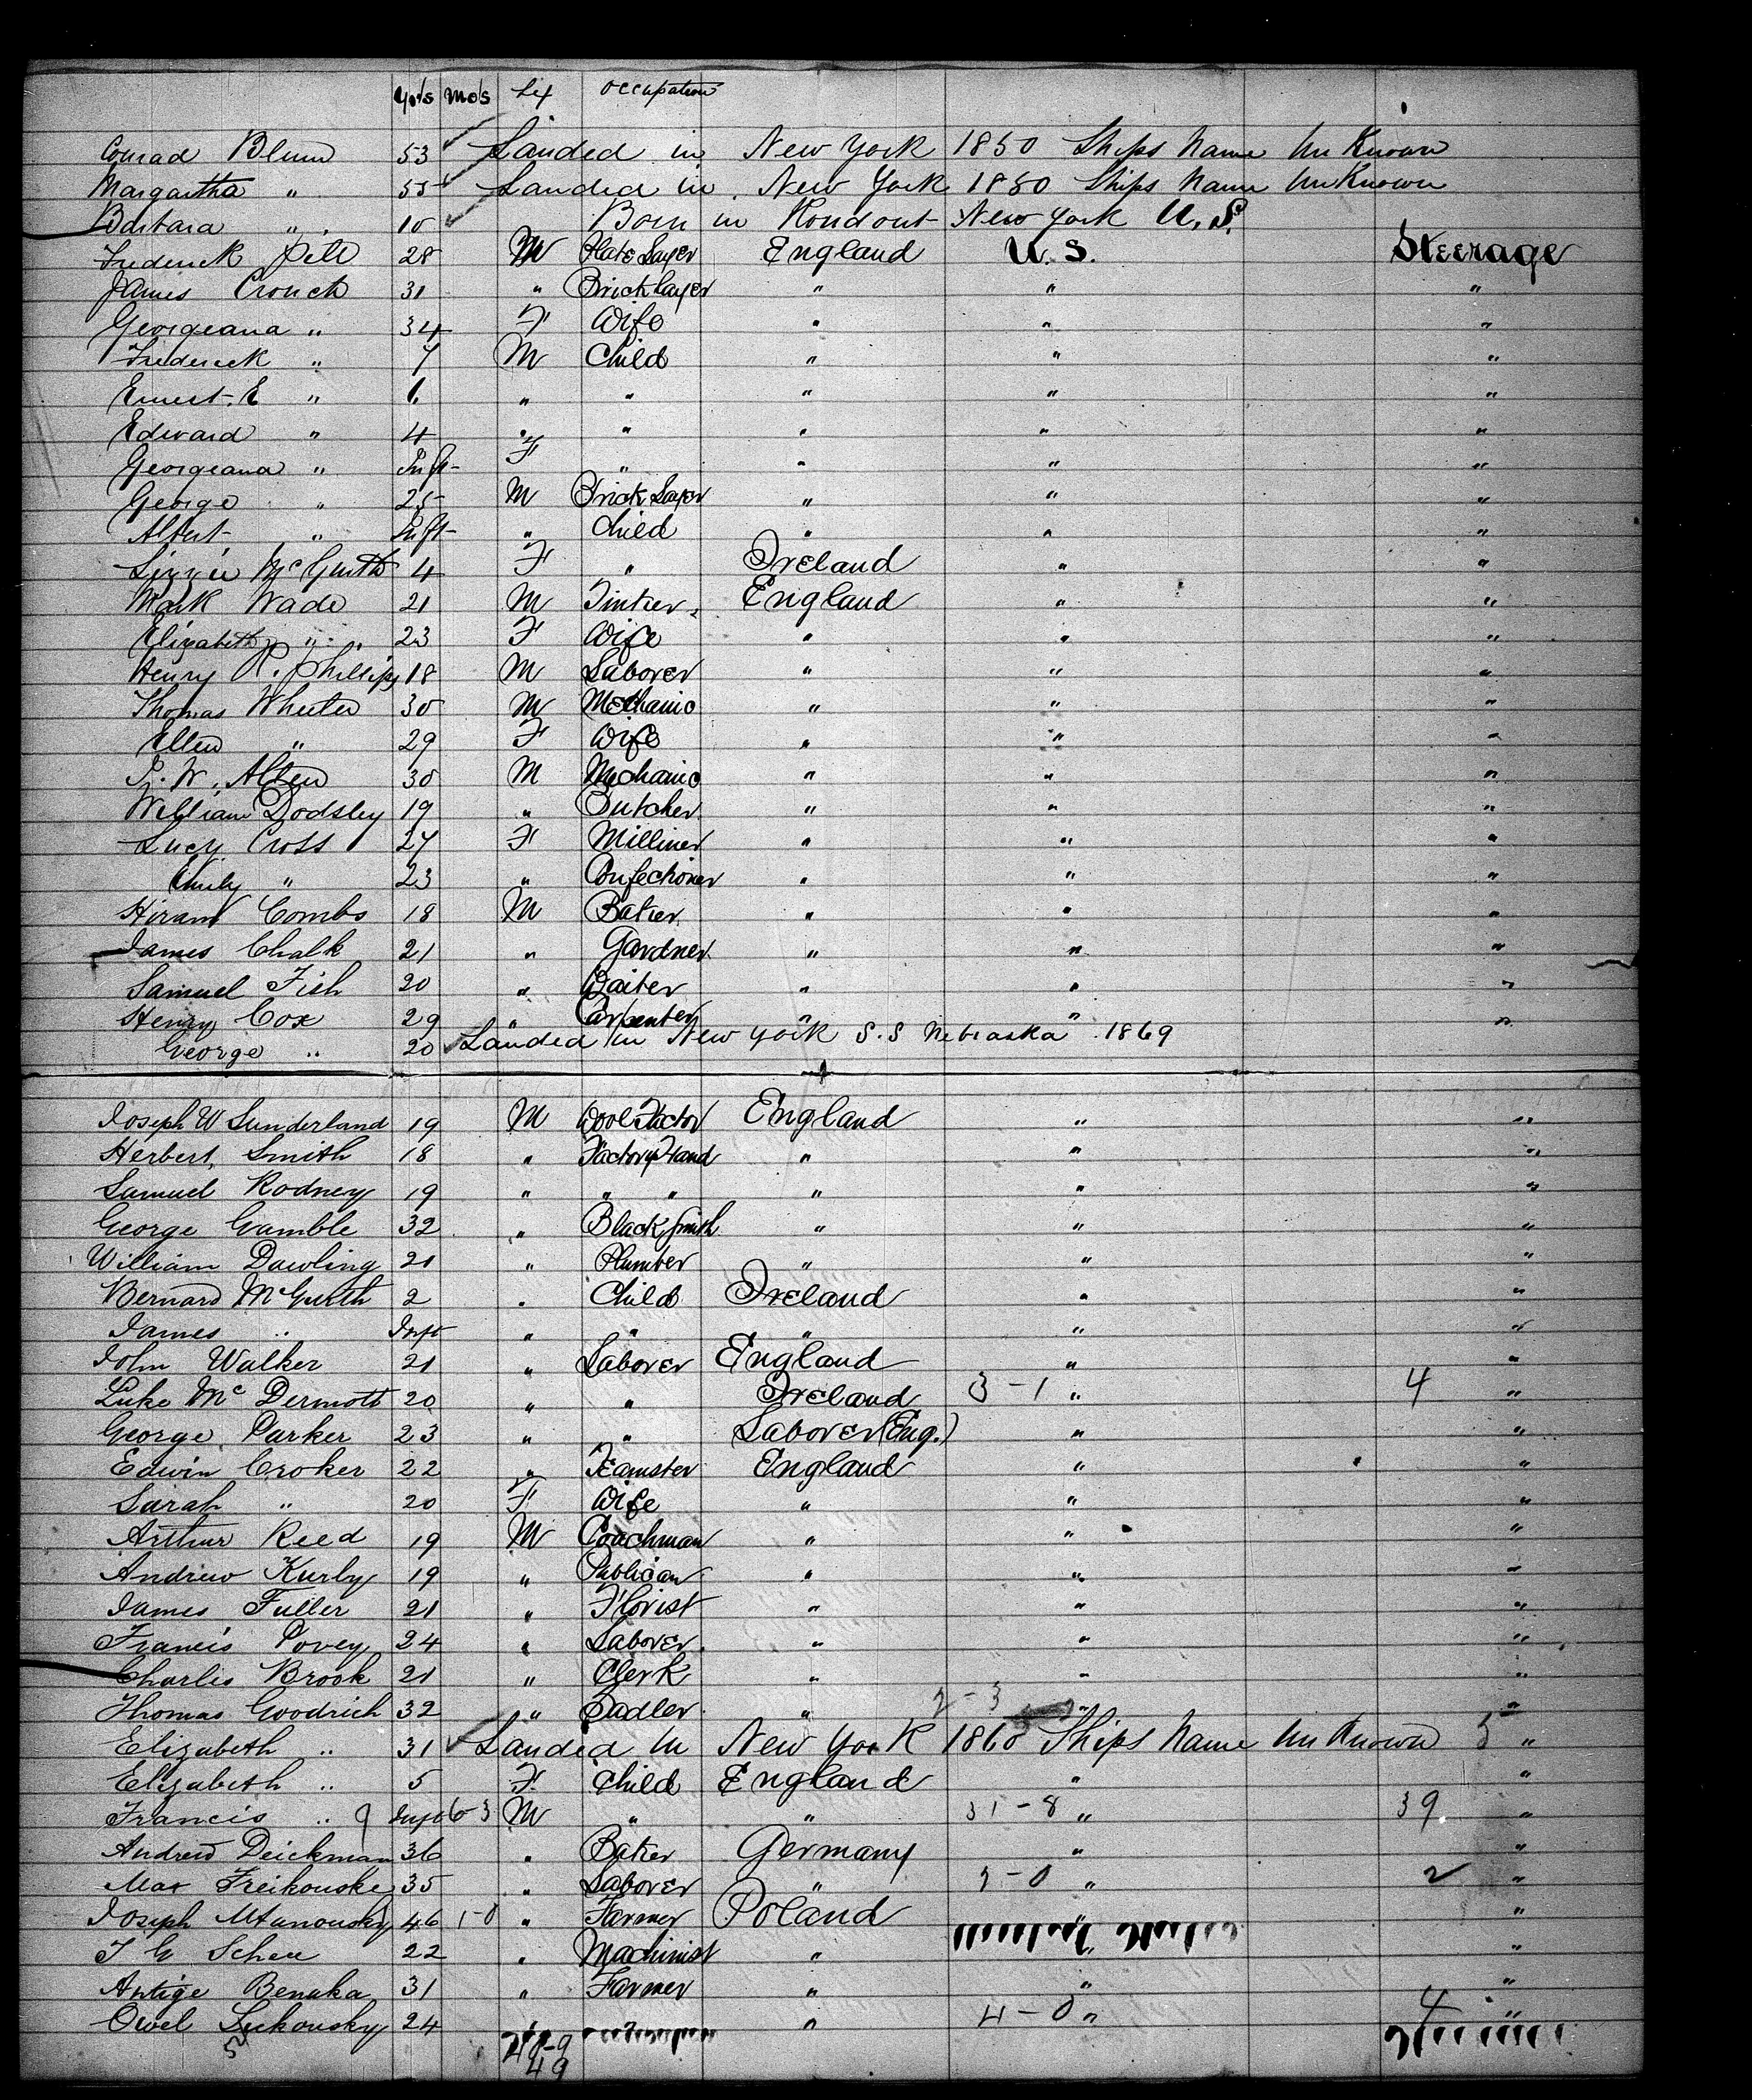 Yrs Mos Sex Occupation
Conrad Blum 53 Landed in New York 1850 Ships Name UnKnown
Margartha " 55 Landed in New York 1850 Ships Name UnKnown
Barbara " 10 Born in Rondout New York U.S.
Frederick Pell 28 M Plate Layer England U.S. Steerage
James Crouch 31 " Brick layer " " "
Georgeana " 34 F Wife " " "
Frederick " 7 M Child " " "
Ernest. E " 6 " " " " "
Edward " 4 " " " " "
Georgeana " Inft F " " " "
George " 25 M Brick Layer " " "
Albert " Inft " Child " " "
Lizzie 4 F " Ireland " "
Mark Wade 21 M England " "
Elizabeth " 23 F Wife " " "
Henry R. Phillips 18 M Laborer " " "
Thomas Wheeler 30 M Mechanic " " "
Ellen " 29 F Wife " " "
W. Allen 30 M Mechanic " " "
William Dodsley 19 " Butcher " " "
Lucy Cross 27 F Milliner " " "
Emily " 23 " Confectioner " " "
Hiram Combs 18 M Baker " " "
James Chalk 21 " Gardner " " "
Samuel Fish 20 " Waiter " " "
Henry Cox 29 " Carpenter " " "
George " 20 Landed in New York S.S Nebraska 1869
Joseph W Sunderland 19 M Wool Factor England " "
Herbert Smith 18 " Factory Hand " " "
Samuel Rodney 19 " " " " " "
George Gamble 32 " Black Smith " " "
William Dawling 21 " Plumber " " "
Bernard 2 " Child Ireland " "
James " Inft " " " " "
John Walker 21 " Laborer England " "
Luke McDermott 20 " " Ireland 3-1 " 4 "
George Parker 23 " " Laborer (Eng.) " "
Edwin Croker 22 " Teamster England " "
Sarah " 20 F Wife " " "
Arthur Reed 19 M Coachman " " "
Andrew Kurby 19 " Publican " " "
James Fuller 21 " Florist " " "
Francis Povey 24 " Laborer " " "
Charles Brook 21 " Clerk " " "
Thomas Goodrich 32 " Sadler " 2-3 "
Elizabeth " 31 Landed in New York 1860 Ships Name UnKnown 5 "
Elizabeth " 5 F Child England " "
Francis " 9 Inft 6-3 M " " 31-8 " 39 "
Andrew Deickman 36 " Baker Germany " "
Max Freikouske 35 " Laborer " 2-0 " 2 "
Joseph 46 1-0 " Farmer Poland " "
22 " Machinist " " "
Antige Benuka 31 " Farmer " " "
Owel Sukousky 24 " 4-0 " 4 "
48-9
49